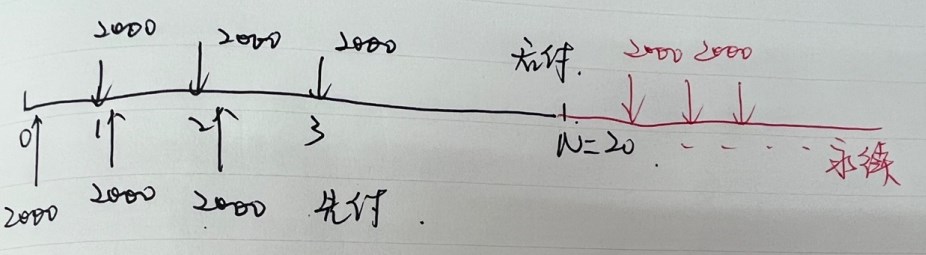 2000 2000 2000 后付. 2000 2000
0 1 2 3 N=20 . - - . . . 永续
2000 2000 2000 先付.